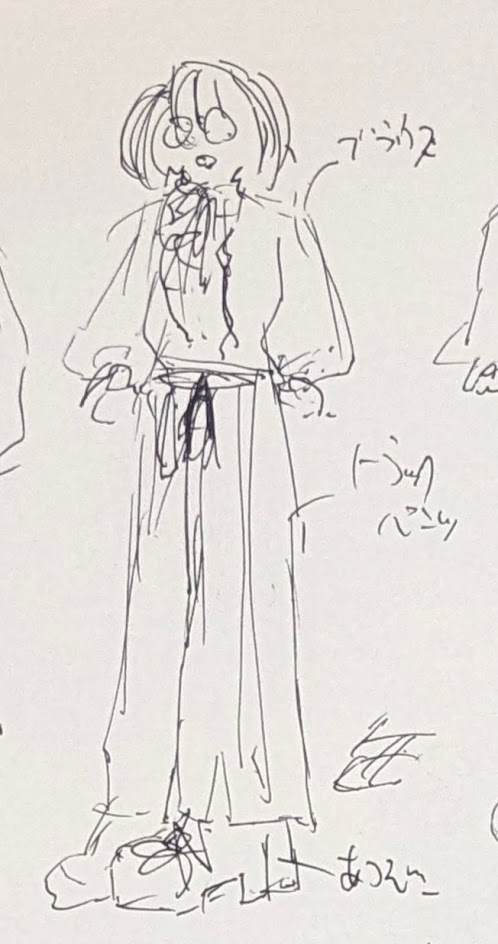 ブラウス
トラック
パンツ
あつぞこ